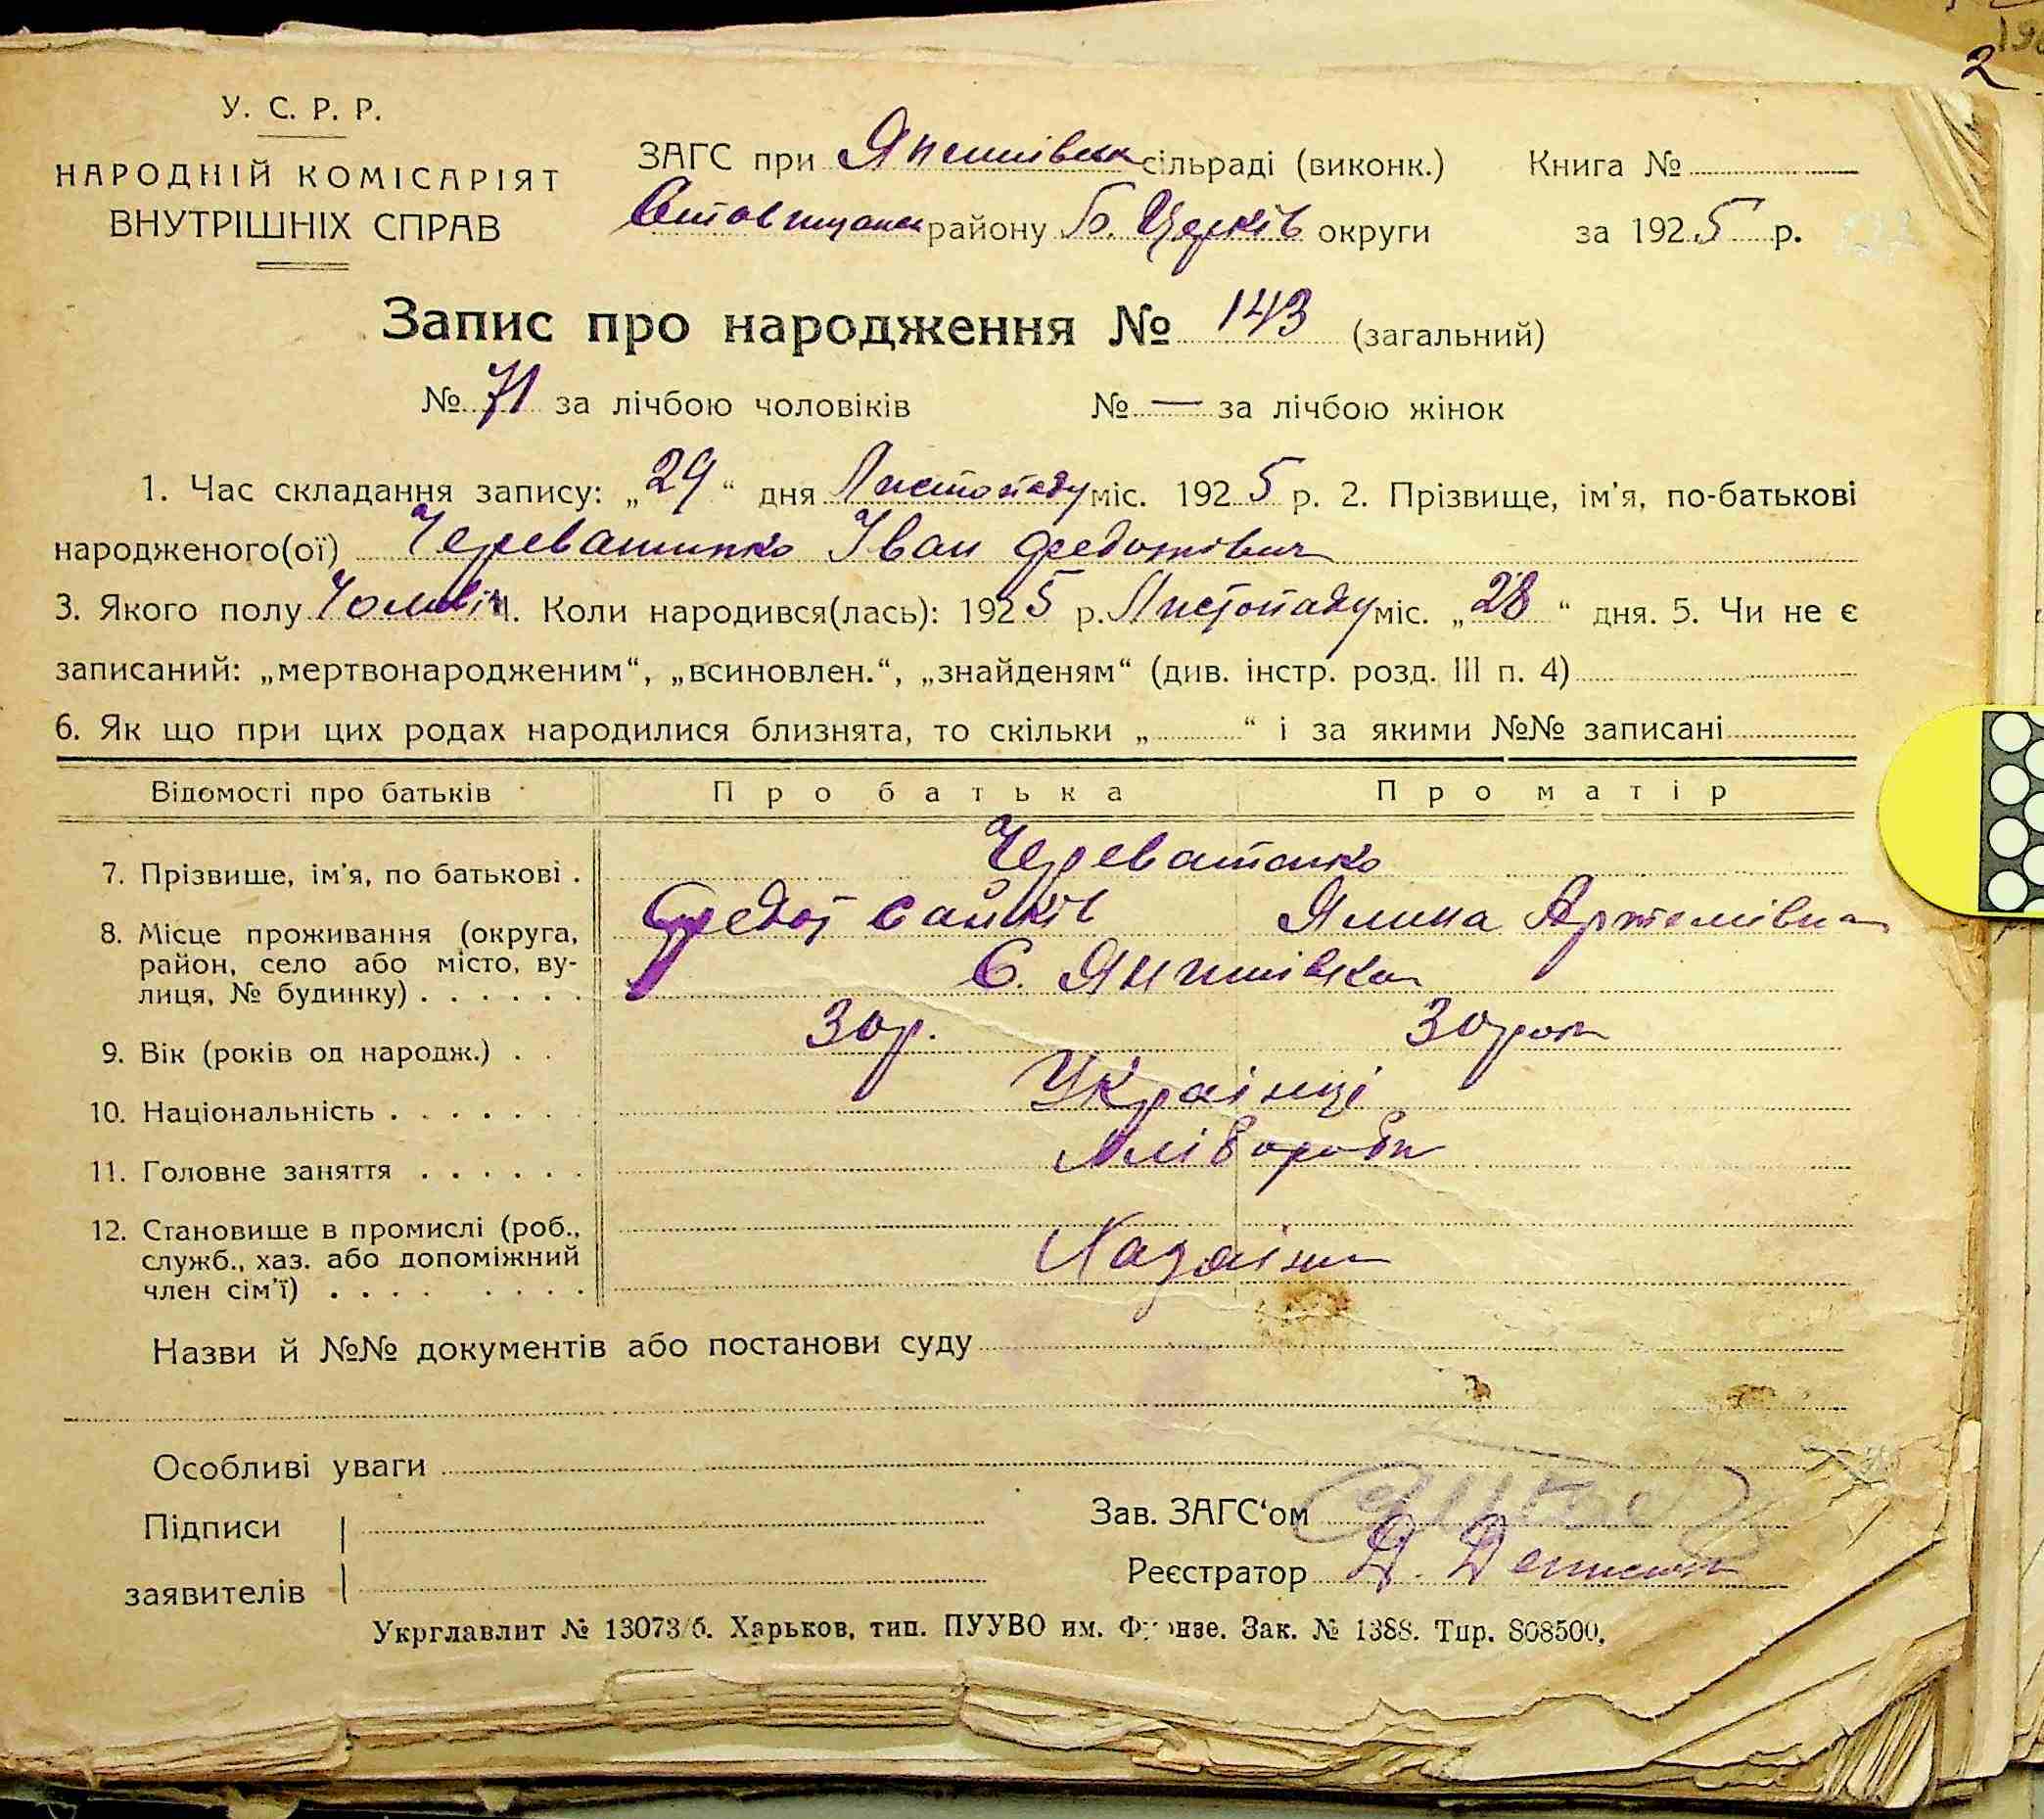 2
У. С. Р. Р.
НАРОДНІЙ КОМІСАРІЯТ
ВНУТРІШНІХ СПРАВ
ЗАГС при Янишівськ сільраді (виконк.) Книга №
Ставищанськ району Б. Церків округи за 1925 р.
Запис про народження № 143 (загальний)
№ 71 за лічбою чоловіків № — за лічбою жінок
1. Час складання запису: „29“ дня Листопаду міс. 1925 р. 2. Прізвище, ім'я, по-батькові
народженого(ої) Череватенко Іван Федотівич
3. Якого полу Чоловіч 4. Коли народився(лась): 1925 р. Листопаду міс. „28“ дня. 5. Чи не є
записаний: „мертвонародженим“, „всиновлен.“, „знайденям“ (див. інстр. розд. III п. 4)
6. Як що при цих родах народилися близнята, то скільки „ “ і за якими №№ записані
Відомості про батьків Про батька Про матір
7. Прізвище, ім'я, по батькові . Череватенко
Федот Ялина Артемівна
8. Місце проживання (округа,
район, село або місто, ву-
лиця, № будинку) . . . . . . С. Янишівка
9. Вік (років од народж.) . . 30 р. 30 рок
10. Національність . . . . . . . Украінці
11. Головне заняття . . . . . . Хлібороби
12. Становище в промислі (роб.,
служб., хаз. або допоміжний
член сім'ї) . . . . . . . . Хазаіни
Назви й №№ документів або постанови суду
Особливі уваги
Підписи
заявителів
Зав. ЗАГС‘ом
Реєстратор Д.
Укрглавлит № 13073/б. Харьков, тип. ПУУВО им. Фрунзе. Зак. № 1388. Тир. 808500.